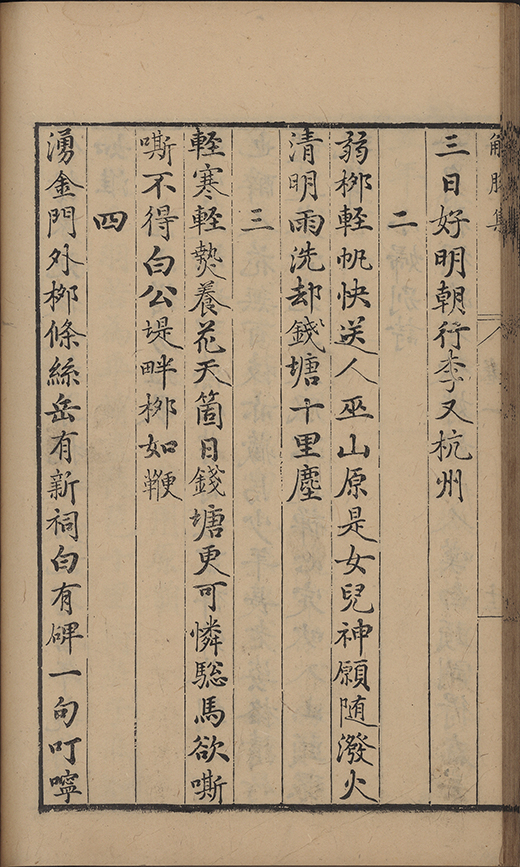 解脫集
三日好明朝行李又杭州
二
弱桞輕帆快送人巫山原是女兒神願随潑火
清明雨洗却錢塘十里塵
三
輕寒輕㷍養花天箇日錢塘更可憐驄馬欲嘶
嘶不得白公堤畔桞如鞭
四
湧金門外桞條絲岳有新祠白有碑一句叮嚀